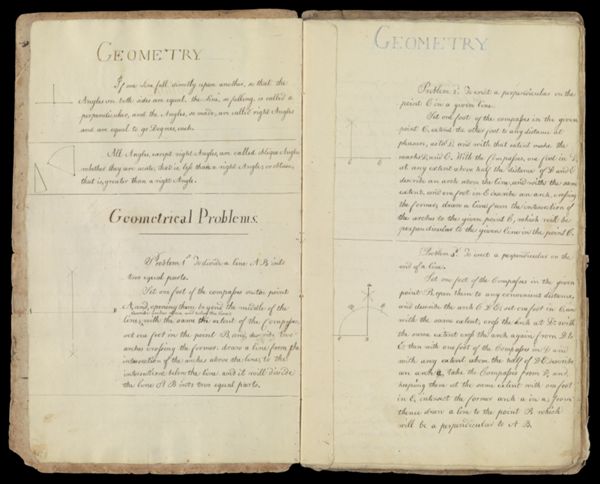 GEOMETRY
If one line fall directly upon another, so that the
Angles on both sides are equal, the line, so falling, is called a
perpendicular, and the Angles, so made, are called right Angles
and are equal to 90 Degrees, each.
All Angles, except right Angles, are called oblique Angles
whether they are acute, that is less than a right Angle, or obtuse,
that is, greater than a right Angle.
Geometrical Problems.
Problem 1st To divide a line A B into
two equal parts.
Set one foot of the compasses in the point
A, and, opening them beyond the middle of the
line,
line, with the same extent of the Compasses,
set one foot in the point B, and, describe two
arches crossing the former: draw a line from the
intersection of the arches above the line, to the
intersection below the line and it will divide
the line A B into two equal parts.
GEOMETRY
Problem 2. To erect a perpendicular on the
point C in a given line.
Set one foot of the compasses in the given
point C, extend the other foot to any distance at
pleasure, as to D, and with that extent make the
marks D, and E. With the Compasses, one foot in D,
at any extent above half the distance of D and E
describe an arch above the line, and with the same
extent, and one foot in E describe an arch, crossing
the former; draw a line from the intersection of
the arches to the given point C, which will be
perpendicular to the given line in the point C.
Problem 3. To erect a perpendicular on the
end of a line.
Set one foot of the Compasses in the given
point B, open them to any convenient distance,
and describe the arch C D E; set one foot in C, and
with the same extent, cross the arch at D: with
the same extent cross the arch again from D to
E: then with one foot of the Compasses in D, and
with any extent above the half of D E, describe
an arch a; take the Compasses from D, and,
keeping them at the same extent with one foot
in E, intersect the former arch a in a; from
thence draw a line to the point B, which
will be a perpendicular to A B.